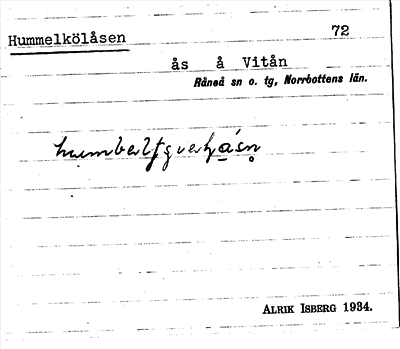 Hummelkölåsen 72
ås å Vitån
Råneå sn o. tg, Norrbottens län.
ALRIK ISBERG 1934.